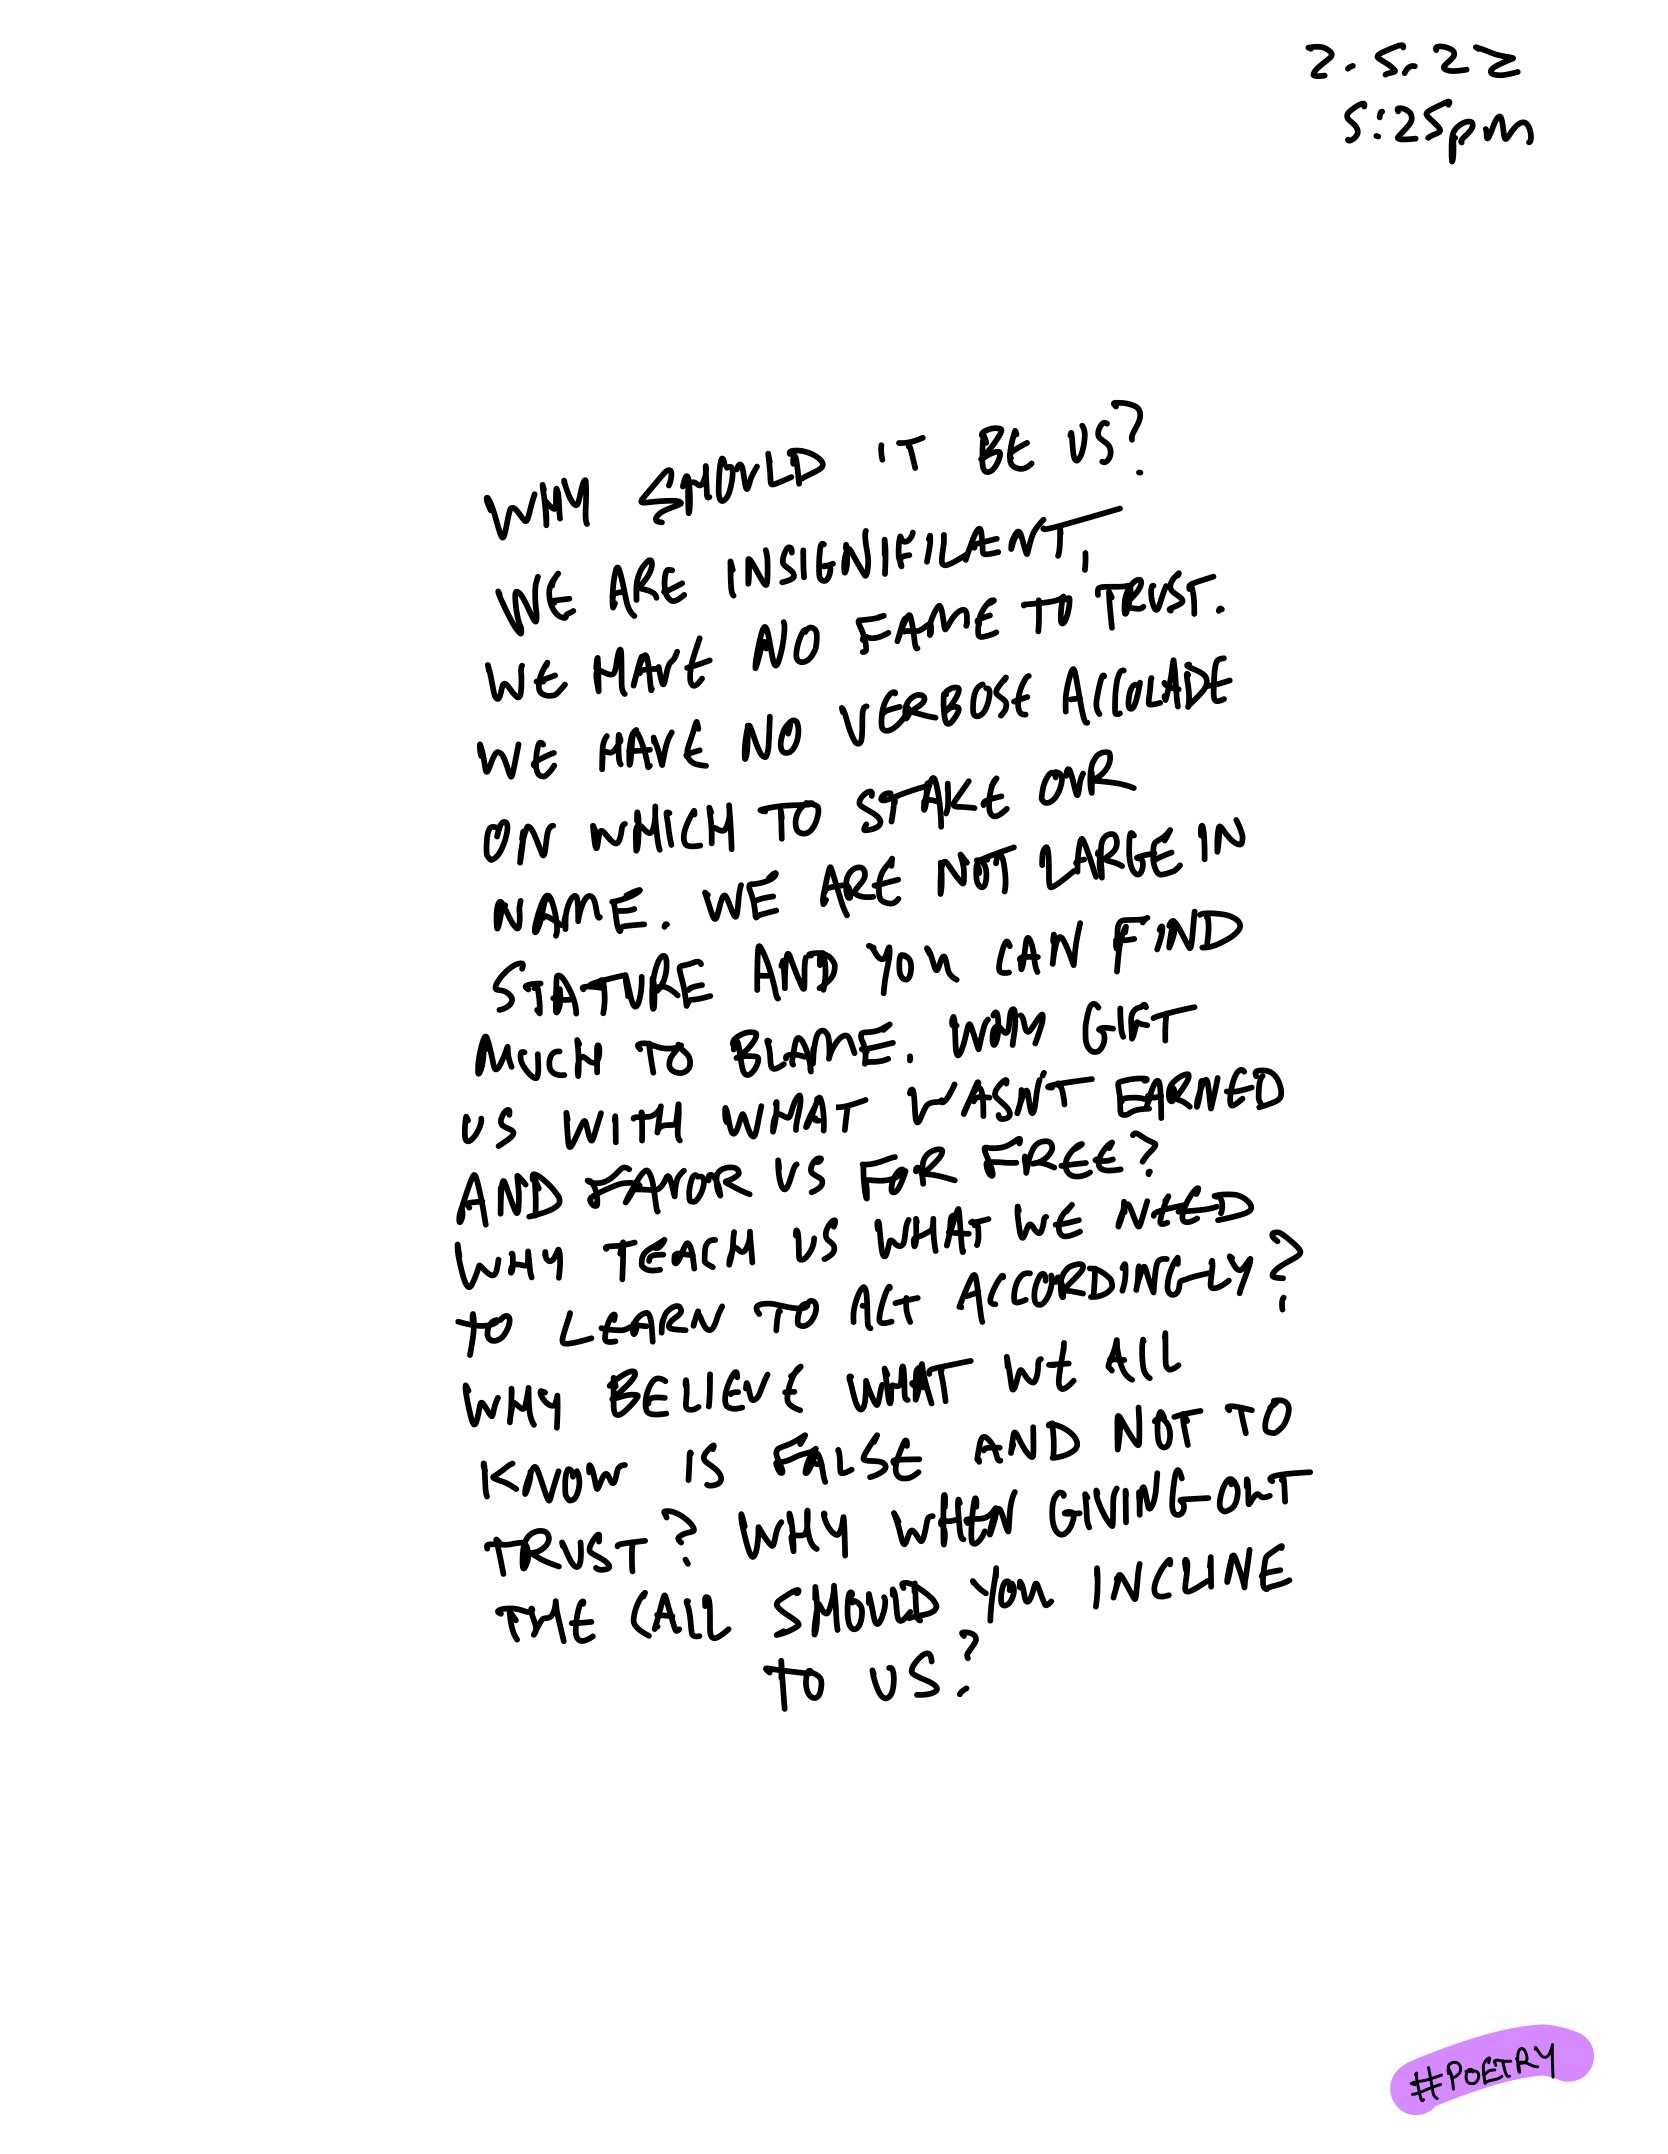 2.5.22
5:25pm
WHY SHOULD IT BE US?
WE ARE INSIGNIFICANT,
WE HAVE NO FAME TO TRUST.
WE HAVE NO VERBOSE ACCOLADE
ON WHICH TO STAKE OUR
NAME. WE ARE NOT LARGE IN
STATURE AND YOU CAN FIND
MUCH TO BLAME. WHY GIFT
US WITH WHAT WASN'T EARNED
AND FAVOR US FOR FREE?
WHY TEACH US WHAT WE NEED
TO LEARN TO ACT ACCORDINGLY?
WHY BELIEVE WHAT WE ALL
KNOW IS FALSE AND NOT TO
TRUST? WHY WHEN GIVING OUT
THE CALL SHOULD YOU INCLINE
TO US?
#POETRY